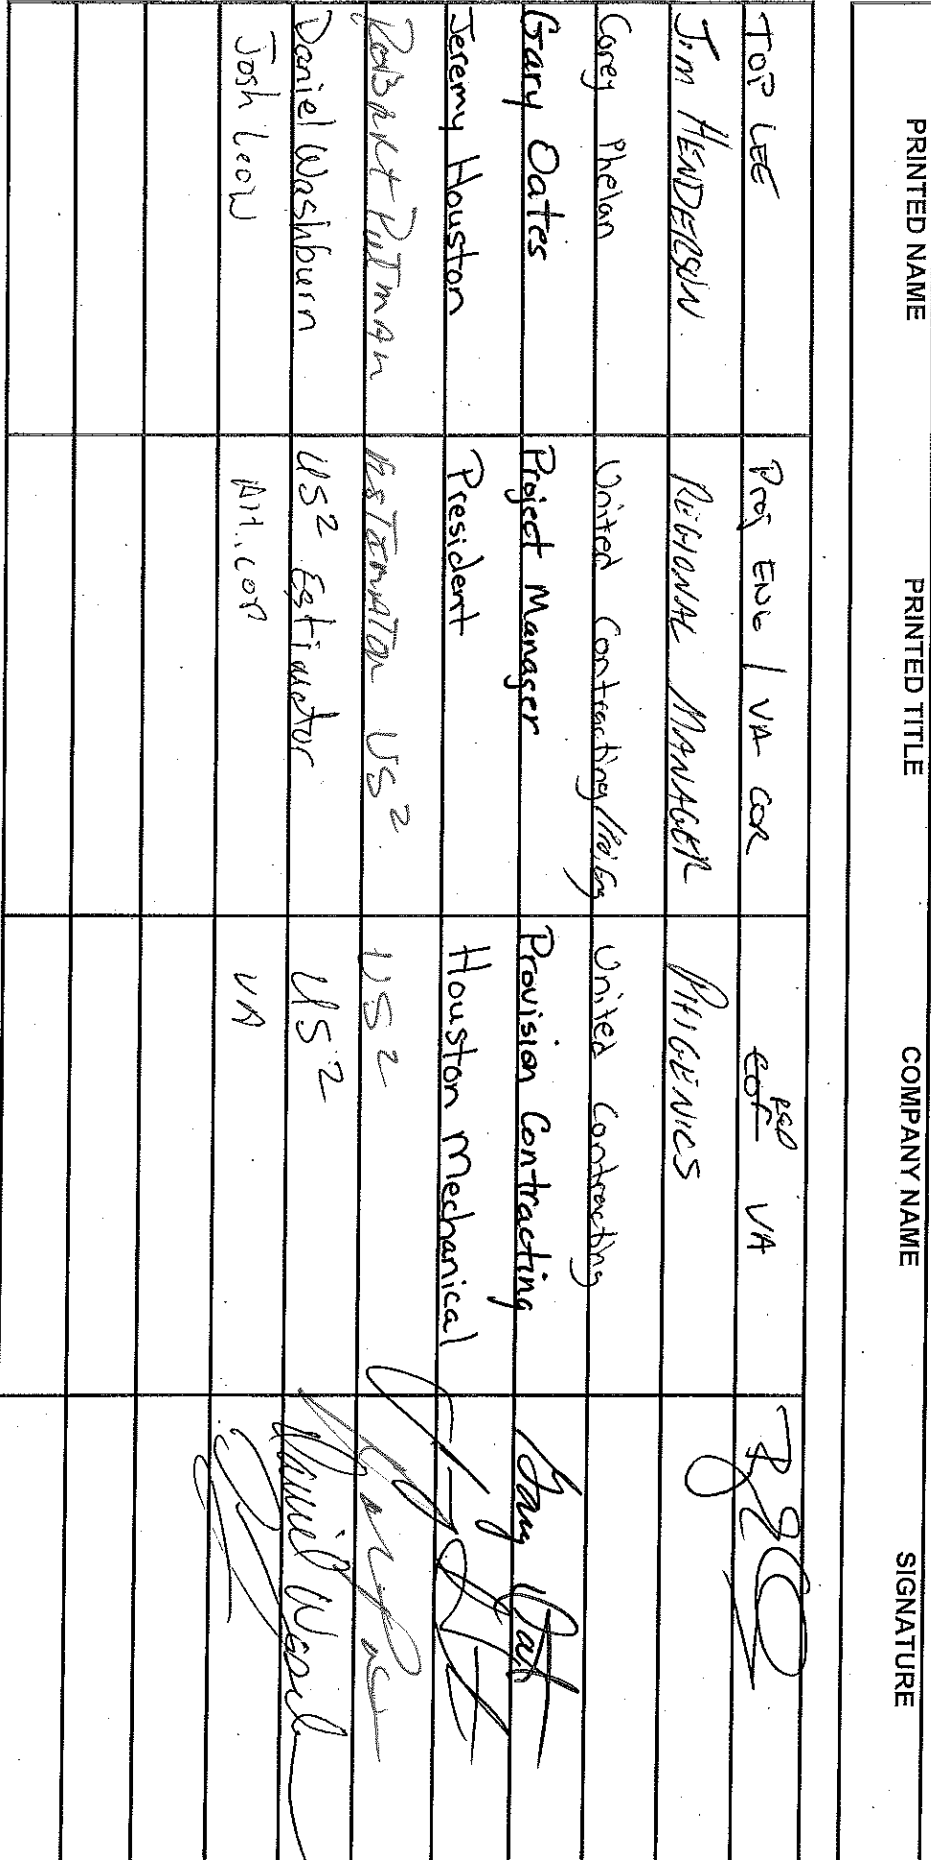 PRINTED NAME PRINTED TITLE COMPANY NAME SIGNATURE
TOP LEE Proj ENG / VA COR VA
Jim HENDERSON REGIONAL MANAGER PHIGENICS
Corey Phelan United Contracting/Proj Eng United Contracting
Gary Oates Project Manager Provision Contracting Gary Oats
Jeremy Houston President Houston Mechanical
Robert Putman Estimator US² US2
Daniel Washburn US² Estimator US2 Daniel Wash
Josh Leow VA